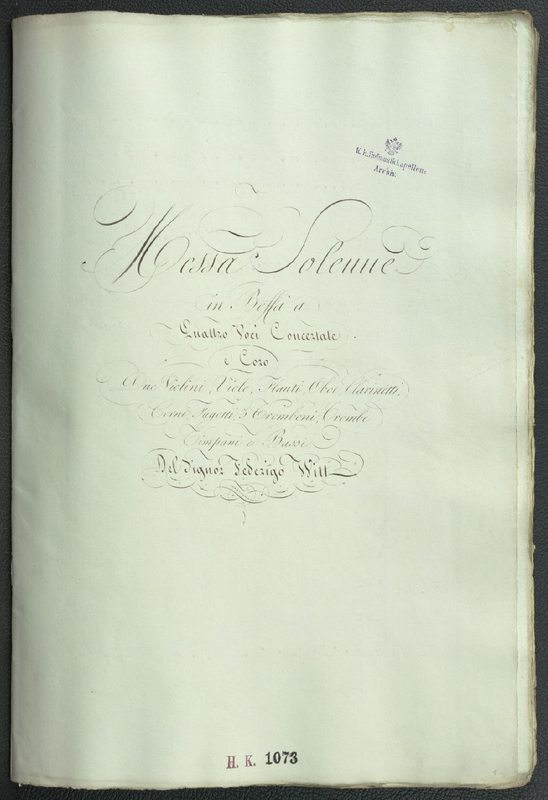 K. k. Hofmusikkapellen-
Archiv.
Messa Solenne
in Beffà a
Quattro Voci Concertate
e Coro
Due Violini, Viole, Flauti, Oboe, Clarinetti,
Corni, Fagotti, 3 Tromboni, Trombe
Timpani e Bassi
Del Signor Federigo Witt
H. K. 1073